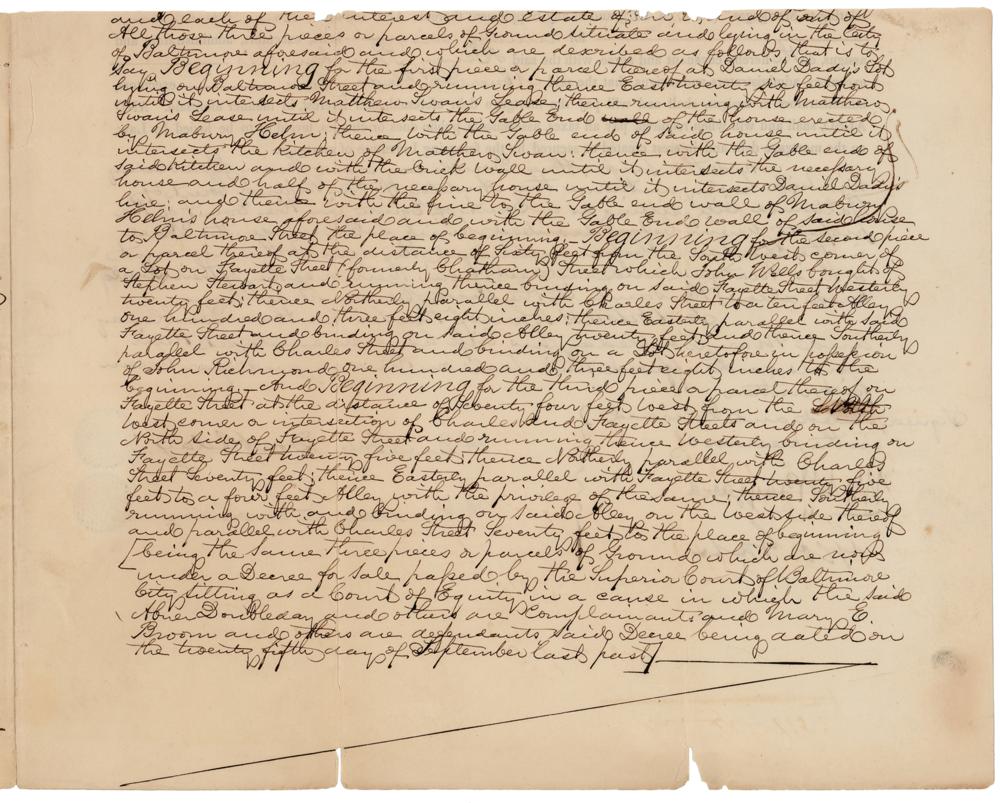 and each of the interest and estate of in and of out of
All those three pieces or parcels of Ground Situate and lying in the City
of Baltimore aforesaid and which are described as follows that is to
say Beginning for the first piece or parcel thereof at Daniel Dady's Lot
lying on Baltimore Street and running thence East twenty six feet from
until it intersects Matthew Swans Lease; thence running with Matthew
Swans Lease until it intersects the Gable End wall of the house erected
by Mabury Helm; thence with the Gable end of said house until it
intersects the Kitchen of Matthew Swan; thence with the Gable end of
said Kitchen and with the brick wall until it intersects the necessary
house and half of the necessary house until it intersects Daniel Dady's
line; and thence with the line to the Gable end wall of Mabury
Helm's house aforesaid and with the Gable End wall of said house
to Baltimore Street the place of beginning. Beginning for the second piece
or parcel thereof at the distance of Sixty feet from the South west corner of
a Lot on Fayette Street (formerly Chatham) Street which John Wells bought of
Stephen Stewart and running thence binding on said Fayette Street westerly
twenty feet; thence Northerly parallel with Charles Street to a ten feet Alley
one hundred and three feet eight inches; thence Easterly parallel with said
Fayette Street and binding on said Alley twenty feet and thence Southerly
parallel with Charles Street and binding on a Lot heretofore in possession
of John Richmond one hundred and three feet eight inches to the
beginning – And Beginning for the third piece or parcel thereof on
Fayette Street at the distance of Seventy four feet west from the North
west corner or intersection of Charles and Fayette Streets and on the
North side of Fayette Street and running thence westerly binding on
Fayette Street twenty five feet thence Northerly parallel with Charles
Street Seventy feet; thence Easterly parallel with Fayette Street twenty five
feet to a four feet Alley with the privilege of the same; thence Southerly
running with and binding on said Alley on the west side thereof
and parallel with Charles Street Seventy feet to the place of beginning
[being the same three pieces or parcels of Ground which are now
under a Decree for Sale passed by the Superior Court of Baltimore
City sitting as a Court of Equity in a cause in which the said
Abner Doubleday and others are Complainants and Mary E.
Broom and others are defendants said Decree being dated on
the twenty fifth day of September last past]